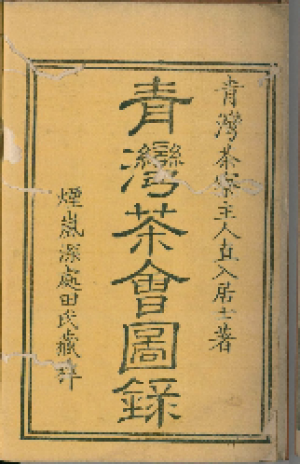 青灣茶寮主人直入居士著
青灣茶會圖錄
煙嵐深處田氏藏梓